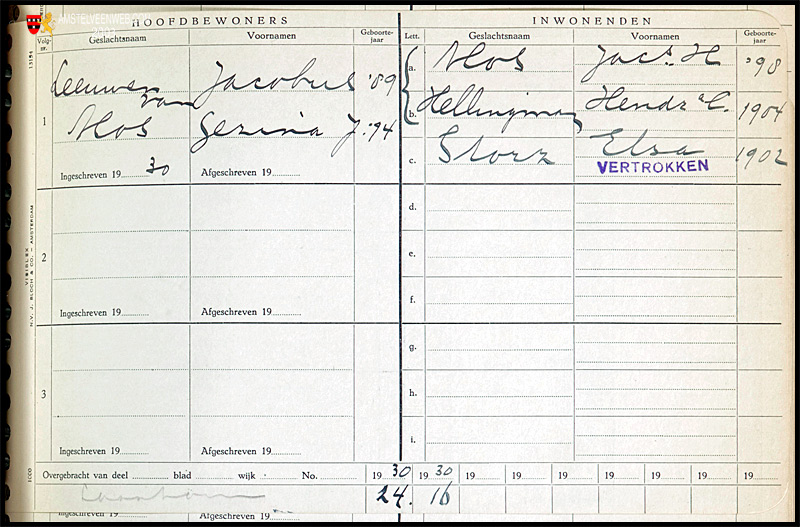 AMSTELVEENWEB.COM
HOOFDBEWONERS
INWONENDEN
Volg-
nr.
Geslachtsnaam
Voornamen
Geboorte-
jaar
Lett.
Geslachtsnaam
Voornamen
Geboorte-
jaar
1
Leeuwen
van
Jacobus
'89
Mos
Gezina J.
'94
Ingeschreven 1930
Afgeschreven 19
a.
Mos
Jacs. H
'98
b.
Hellingman
Hendr. C.
1904
c.
Storz
Elsa
1902
VERTROKKEN
2
Ingeschreven 19
Afgeschreven 19
d.
e.
f.
3
Ingeschreven 19
Afgeschreven 19
g.
h.
i.
VISIBLEX
N.V. J. BLOCH & CO. — AMSTERDAM
Overgebracht van deel blad wijk No. 1930 1930 19 19 19 19 19 19 19
24. 16
Afgeschreven 19